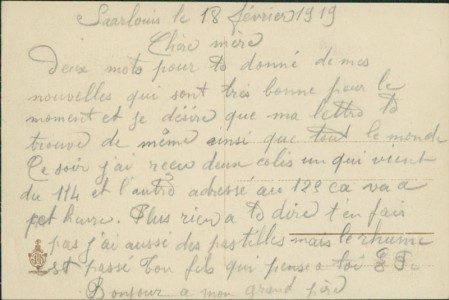 Saarlouis le 18 février 1919
Chère mère
Deux mots pour to donné de mes
nouvelles qui sont très bonne pour le
moment et je désire que ma lettre to
trouve de même ainsi que tout le monde
Ce soir j'ai reçu deux colis un qui vient
du 114 et l'autre adressé au 12e ca va a
heure. Plus rien a to dire t'en fait
pas j'ai aussi des pastilles mais le rhume
est passé ton fils qui pense a toi
Bonjour a mon grand père